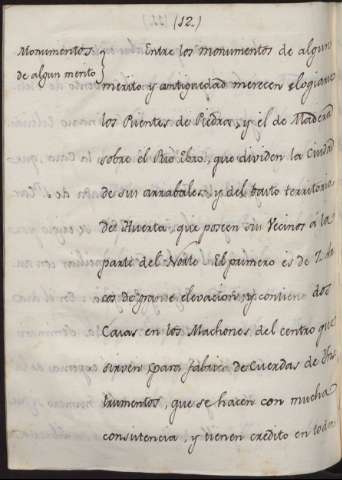 (12.)
Monumentos
de algun merito
Entre los monumentos de algun
merito y antiguedad merecen elogiarse
los Puentes de Piedra, y el de Madera
sobre el Rio Ebro, que dividen la Ciudad
de sus arrabales, y del basto territorio
de Huerta, que poseen sus Vecinos á la
parte del Norte. El primero es de 7. Ar
cos de grande elevacion, y contiene dos
Casas en los Machones del centro que
sirven para fabrica de Cuerdas de Ins
trumentos, que se hacen con mucha
consistencia, y tienen credito en toda